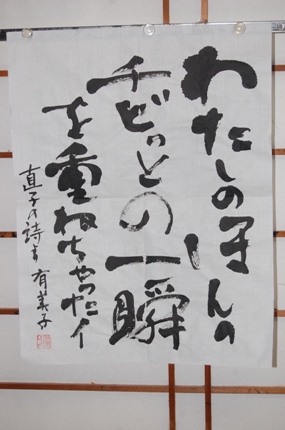 わたしのほんの
チビっとの一瞬
を重ねちゃったイ
直子の詩 有美子